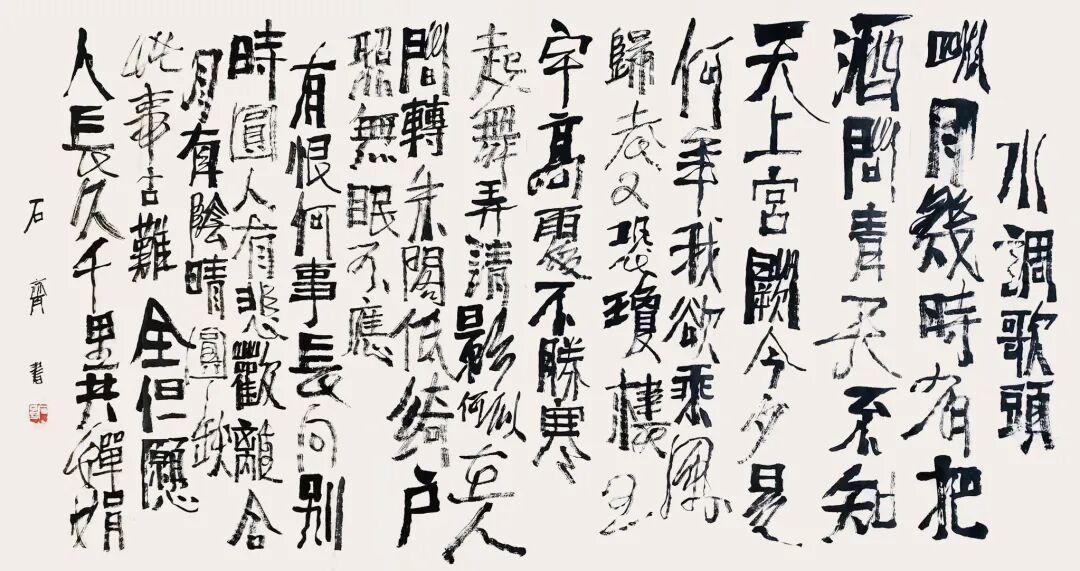 水調歌頭
明月幾時有把
酒問青天不知
天上宮闕今夕是
何年我欲乘風
歸去又恐瓊樓玉
宇高處不勝寒
起舞弄清影何似在人
間轉朱閣低綺户
照無眠不應
有恨何事長向別
時圓人有悲歡離合
月有陰晴圓缺
此事古難全但願
人長久千里共嬋娟
石齊書